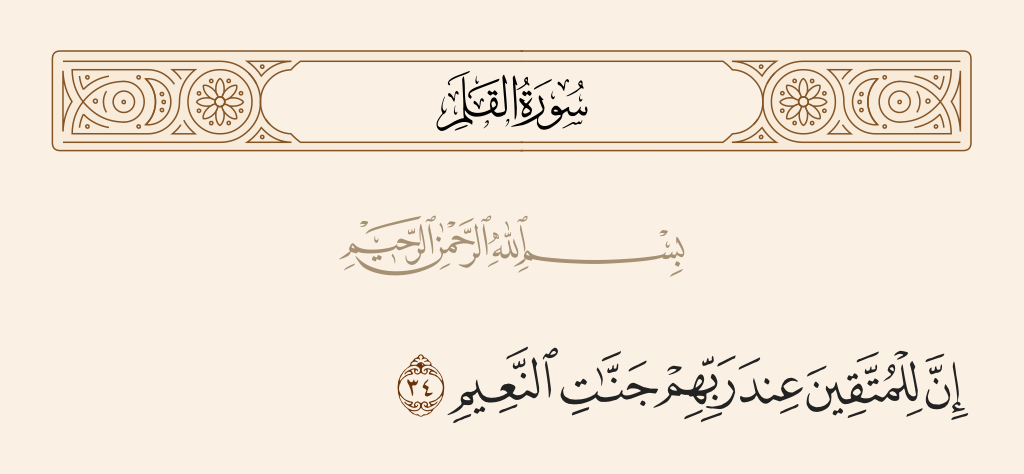 سُورَةُ القَلَمِ
بِسْمِ ٱللَّهِ ٱلرَّحْمَٰنِ ٱلرَّحِيمِ
إِنَّ لِلْمُتَّقِينَ عِندَ رَبِّهِمْ جَنَّٰتِ ٱلنَّعِيمِ ٣٤